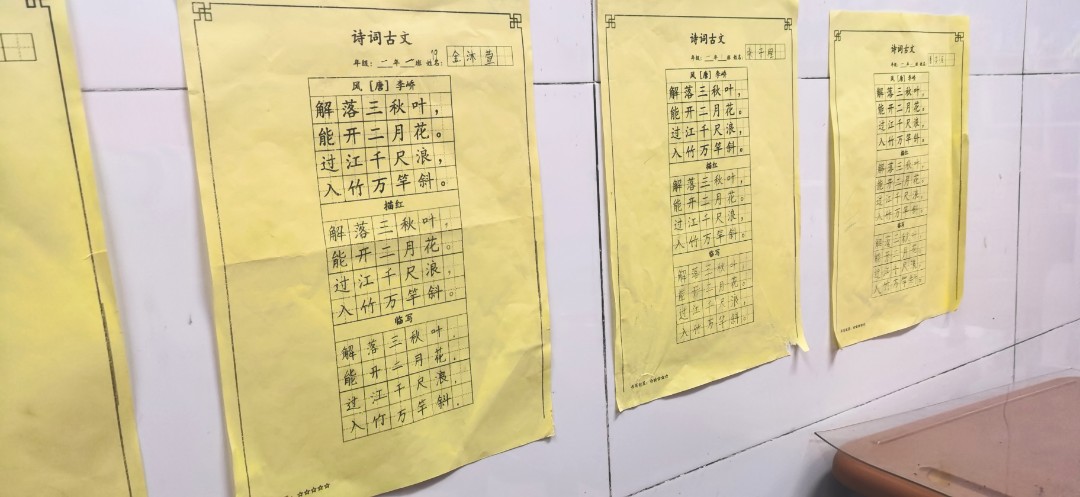 诗词古文
年级：一年一班 姓名：金沐萱
风 [唐] 李峤
解落三秋叶，
能开二月花。
过江千尺浪，
入竹万竿斜。
描红
解落三秋叶，
能开二月花。
过江千尺浪，
入竹万竿斜。
临写
解落三秋叶，
能开二月花。
过江千尺浪，
入竹万竿斜。
☆☆☆☆☆
诗词古文
年级：一年 班 姓名：
风 [唐] 李峤
解落三秋叶，
能开二月花。
过江千尺浪，
入竹万竿斜。
描红
解落三秋叶，
能开二月花。
过江千尺浪，
入竹万竿斜。
临写
解落三秋叶，
能开二月花。
过江千尺浪，
入竹万竿斜。
诗词古文
年级：一年 班 姓名：
风 [唐] 李峤
解落三秋叶，
能开二月花。
过江千尺浪，
入竹万竿斜。
描红
解落三秋叶，
能开二月花。
过江千尺浪，
入竹万竿斜。
临写
解落三秋叶，
能开二月花。
过江千尺浪，
入竹万竿斜。